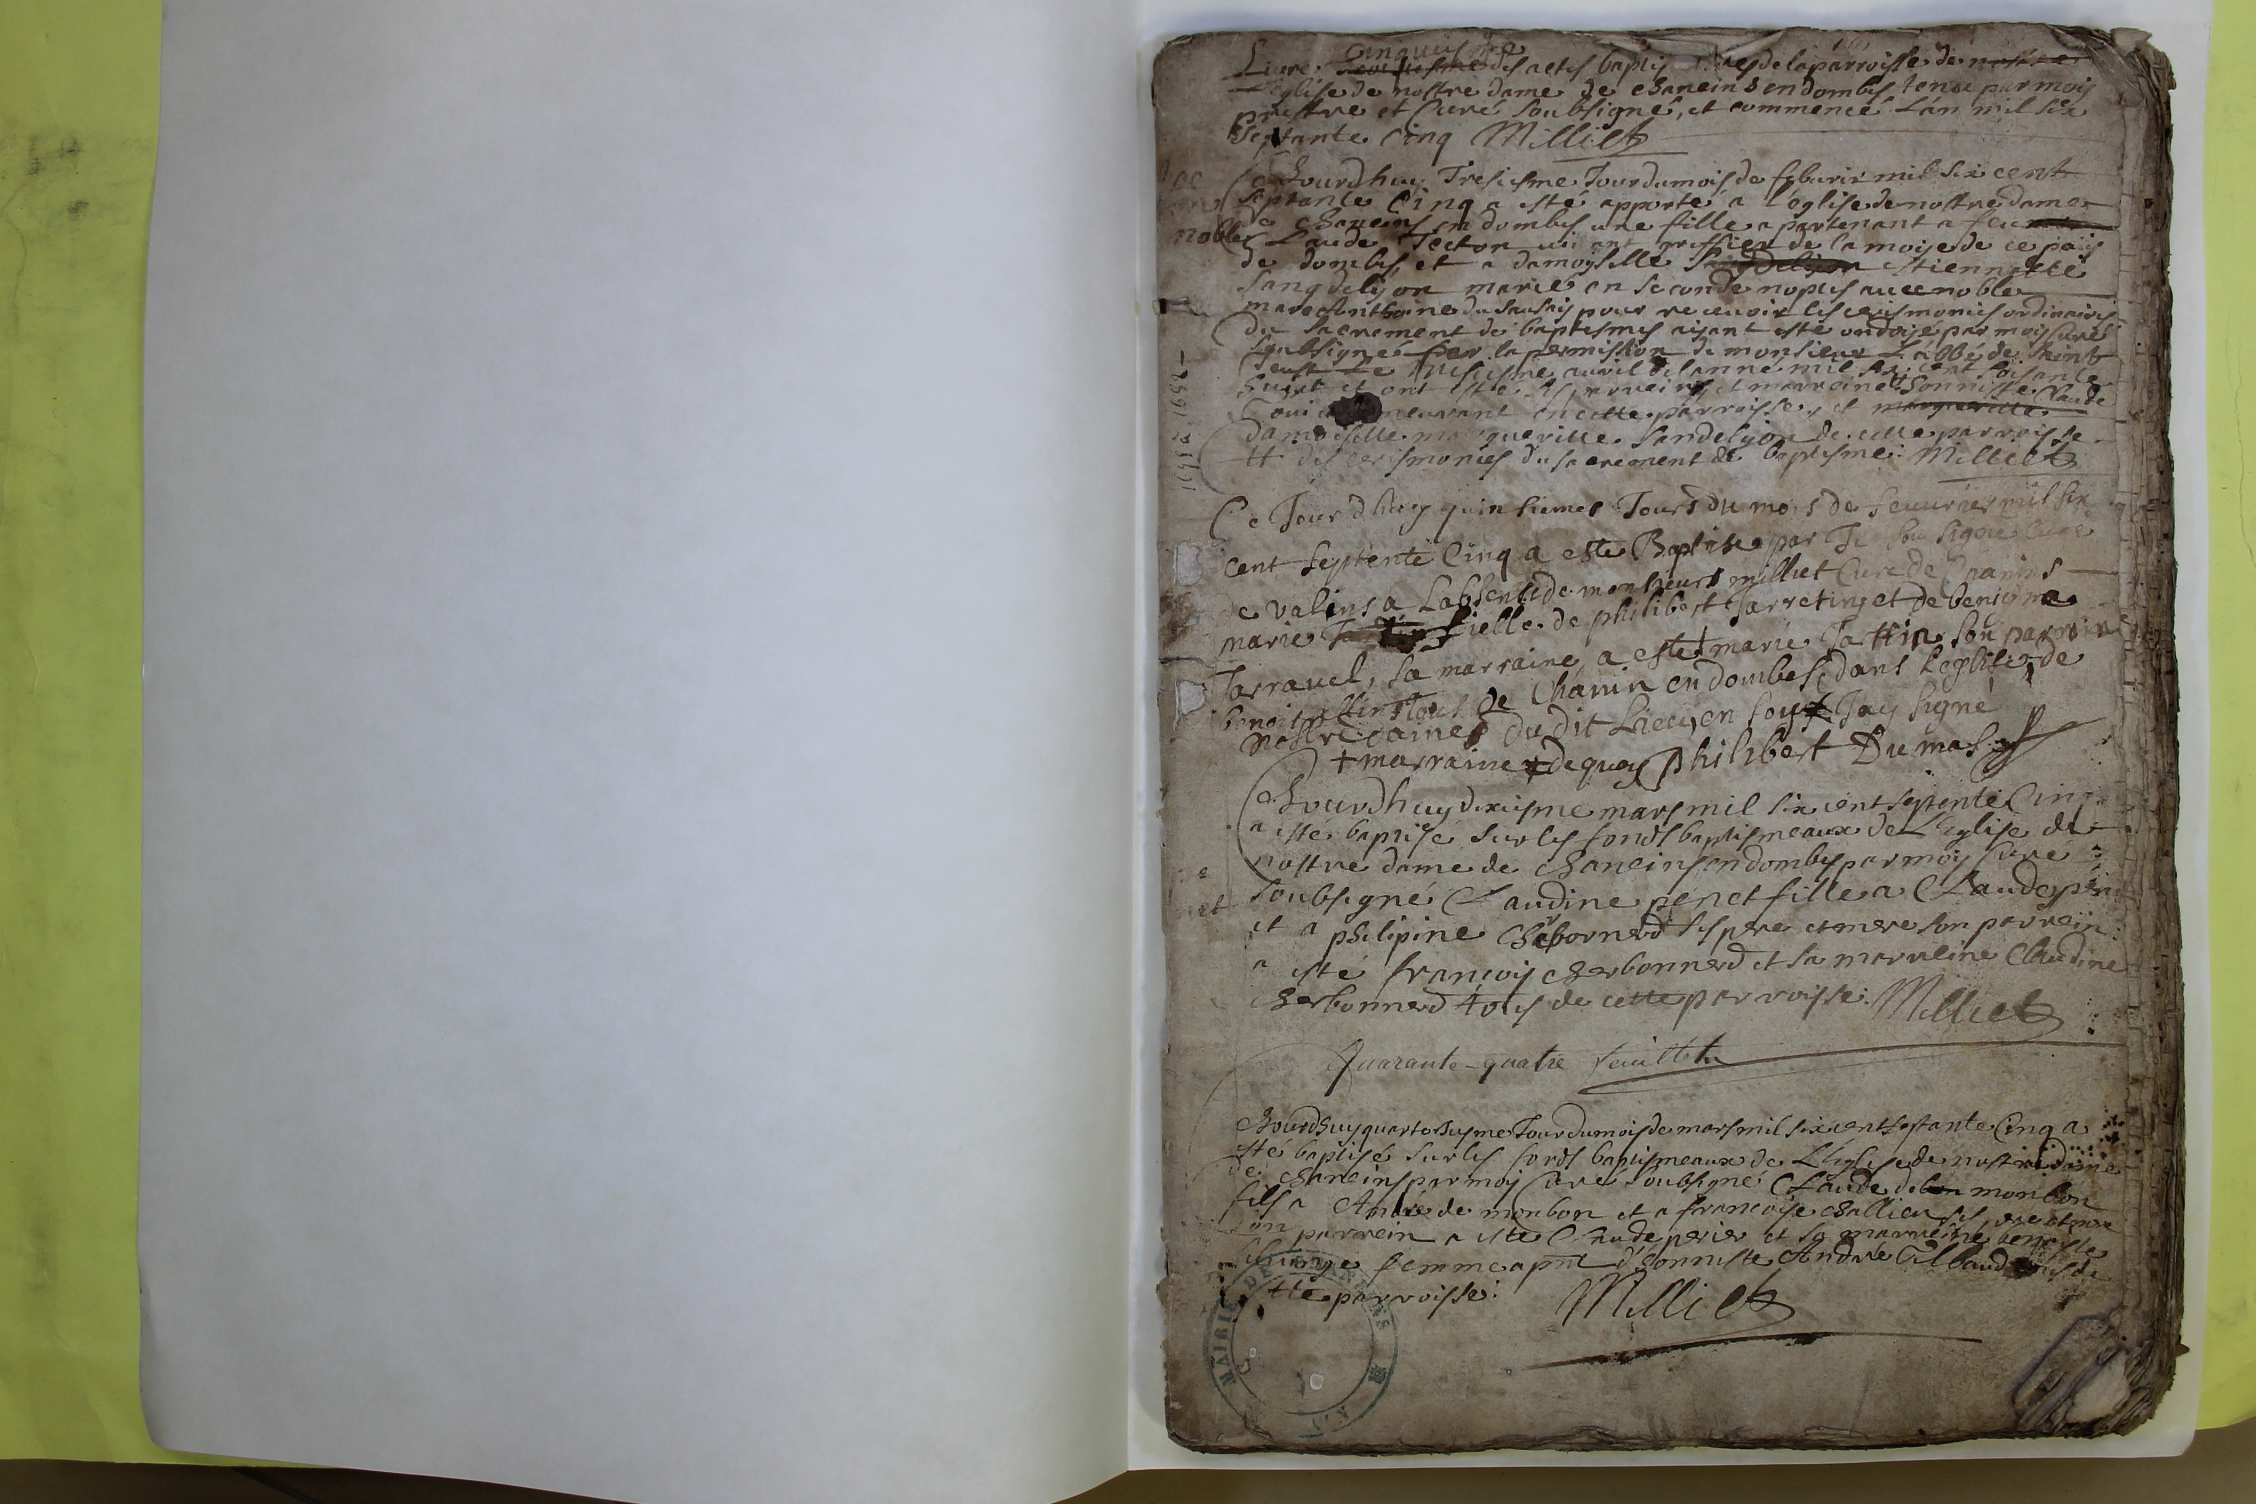 Cinquiesme
Livre des actes baptis de la parroisse de
L'eglise de nostre dame de chaneins en dombes tenu par moy
prestre et Curé soubsigné, et commencé L'an mil six
septante Cinq Milliet
Ce Jourd huy Tresiesme Jour du mois de feburir mil six cent
septante Cinq a esté apporté a l'eglise de nostre dame
de chaneins en dombes une fille apartenant a feu
noble Claude greffier de la moise de ce païs
de dombes, et a damoyselle Estiennette
Sang de lyon marié en seconde nopces avec noble
marc Anthoine du sausais pour recevoir les ceresmonies ordinaires
du sacrement de baptesmes aisant esté ondoyé par moy Curé
soubsigné par la permission de monsieur L'abbé de Saint
avril de l'anné mil six cent soisante
huict et ont esté ses parrein et marreine honneste Claude
demeurant en cette parroisse, et
damoiselle margueritte Sandelyon de cette parroisse
des ceresmonies du sacrement de baptesme. Milliet
Ce Jour d'huy quinsiemes Jours du mois de feuvrier mil six
cent septente Cinq a esté Baptisé par Je sou signé Curé
de valins a Labsente de monsieurs milliet Curé de Chanins
marie fielle de philibert Jarretin et de benigne
Jarravel, sa marraine, a esté + marie Jattin son parrain
benoit tous de Chanin en dombes, dans L'eglise de
Nostre dames du dit Lieu, en foy + Jay signé
+ marraine + de quoy Philibert Dumas
Ce Jourdhuy dixiesme mars mil six cent septente Cinq
a esté baptisé sur les fonds baptismeaux de L'eglise de
nostre dame de chaneins en dombes par moy Curé
soubsigné Claudine penet fille a Claude penet
et a philipine cherbonnerd ses pere et mere son parrein
a esté françois cherbonnerd et sa marreine Claudine
cherbonnerd tous de cette parroisse. Milliet
Quarante-quatre feuillets
Ce Jourdhuy quatorsiesme Jour du mois de mars mil six cent septante Cinq a
esté baptisé sur les fonds baptismeaux de L'eglise de nostre dame
de chaneins par moy Curé soubsigné Claude de monbon
fils a André de monbon et a françoise challieu ses pere et mere
son parrein a esté Claude perier et sa marreine benoiste
femme a pnt d'honneste André Tilbaud tous de
cette parroisse. Milliet
MAIRIE DE CHANEINS